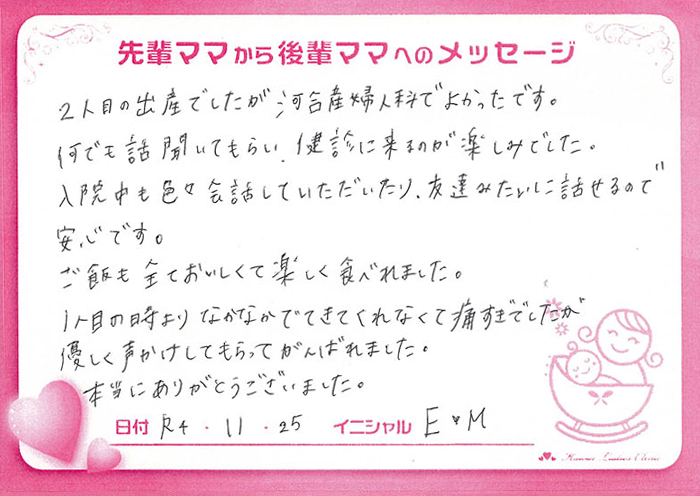 先輩ママから後輩ママへのメッセージ
2人目の出産でしたが河合産婦人科でよかったです。
何でも話聞いてもらい、健診に来るのが楽しみでした。
入院中も色々会話していただいたり、友達みたいに話せるので
安心です。
ご飯も全ておいしくて楽しく食べれました。
1人目の時よりなかなかでてきてくれなくて痛すぎでしたが
優しく声かけしてもらってがんばれました。
本当にありがとうございました。
日付 R4・11・25 イニシャル E♥M